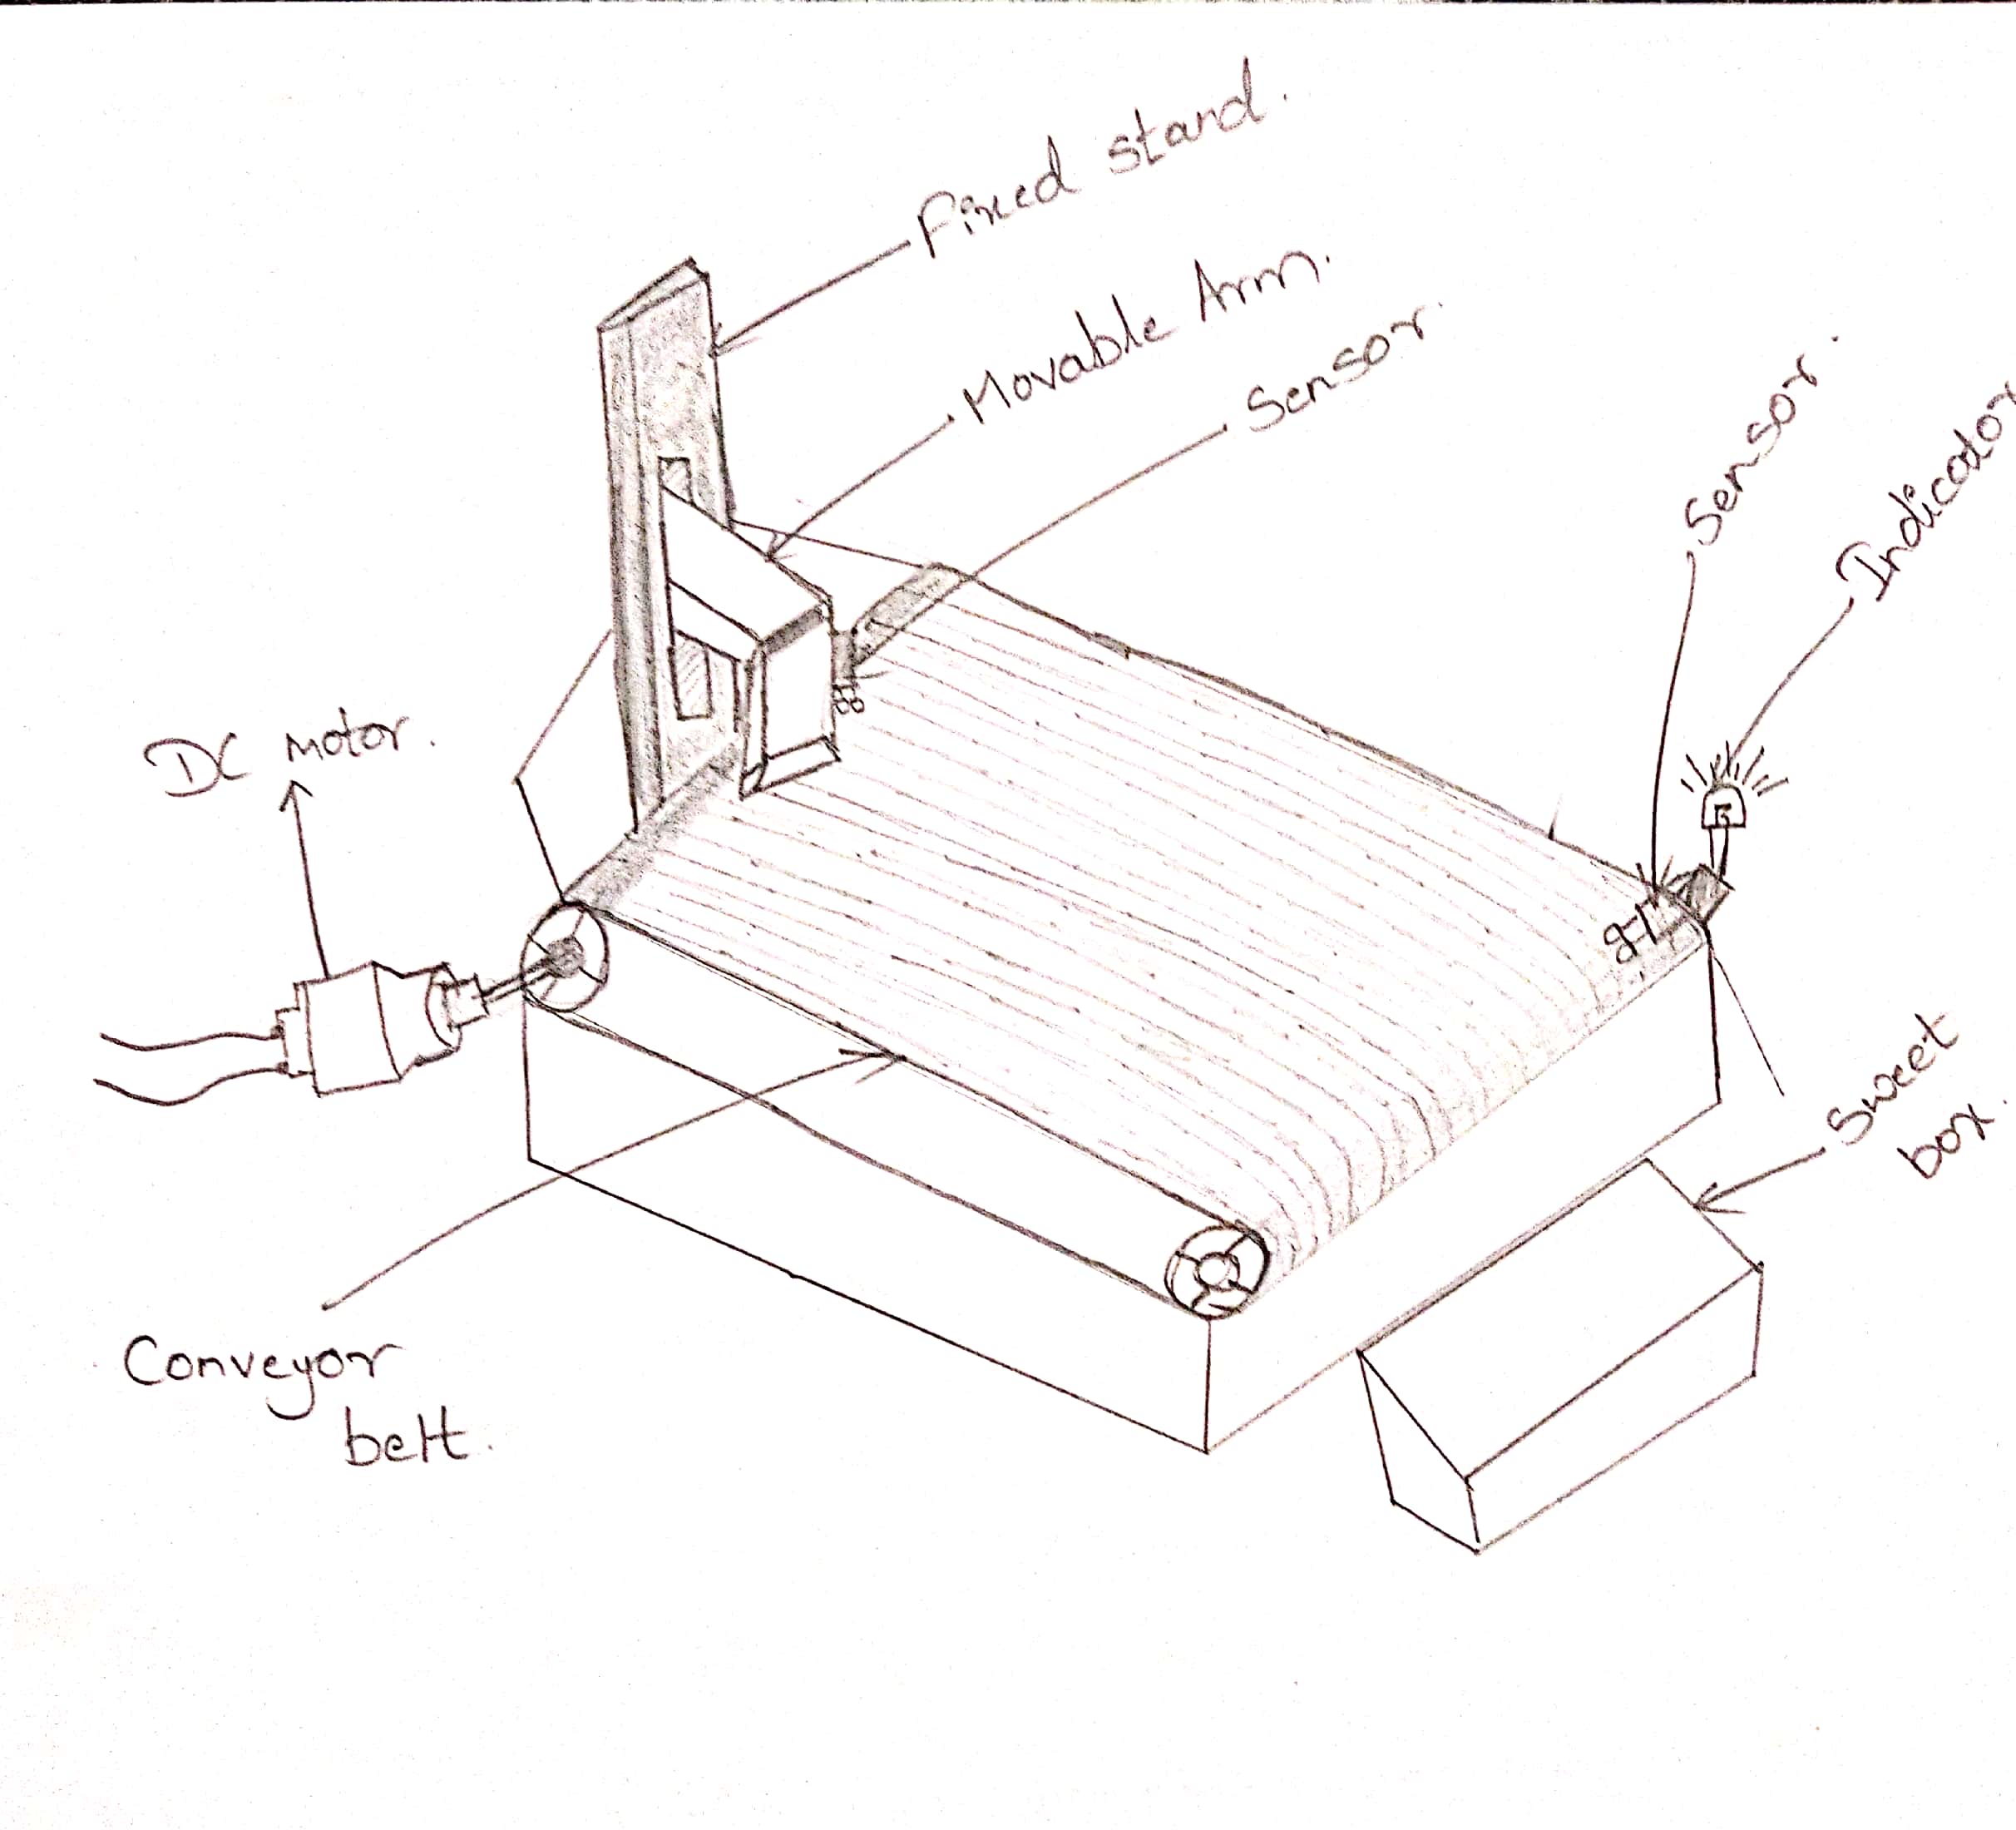 Fixed stand.
Movable Arm.
Sensor.
Sensor.
Indicator
DC motor.
Sweet
box.
Conveyor
belt.